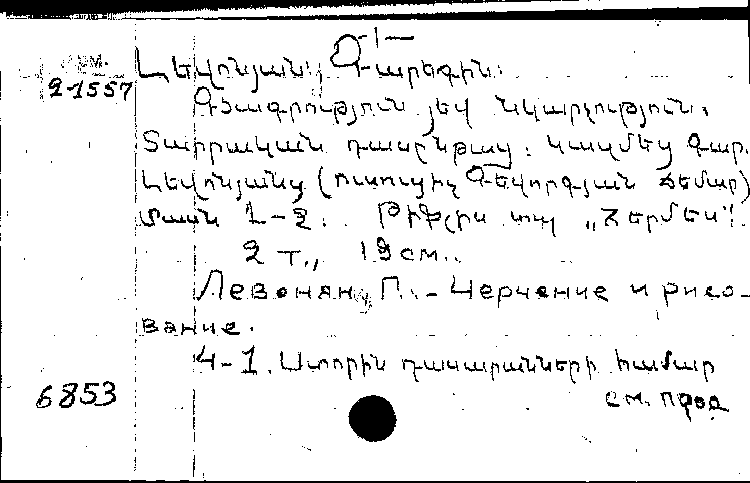 -1-
Լեվոնյան, Գարեգին:
2-1557
Գծագրություն յեվ նկարչություն:
Տարրական դասընթաց: Կազմեց Գար.
Լեվոնյանց (ուսուցիչ Գեվորգյան ճեմար)
Մասն 1-2: Թիֆլիս տպ „Հերմես".
2 т., 19 см..
Левонян, Г. - Черчение и рисо-
вание.
Ч-1. Ստորին դասարանների համար
6853
см. прод